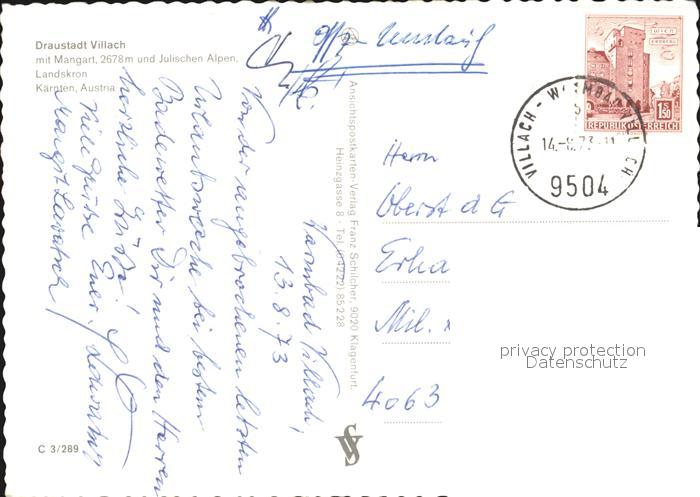 Draustadt Villach
mit Mangart, 2678m und Julischen Alpen,
Landskron
Kärnten, Austria
Warmbad Villach,
13.8.73
Von der angebrochenen letzten
Urlaubswoche bei bestem
Badewetter Dir und den Herren
herzliche Grüße!
Viele Grüße Euer
Margit
C 3/289
Ansichtspostkarten-Verlag Franz Schilcher, 9020 Klagenfurt,
Heinzgasse 8 - Tel. (04222) 85228
WIEN
ERDBERG
1.50
REPUBLIK ÖSTERREICH
VILLACH - WARMBAD VILLACH
14.-8.73-11
9504
Herrn
Oberst d G
Erha
Mil.
4063
privacy protection
Datenschutz